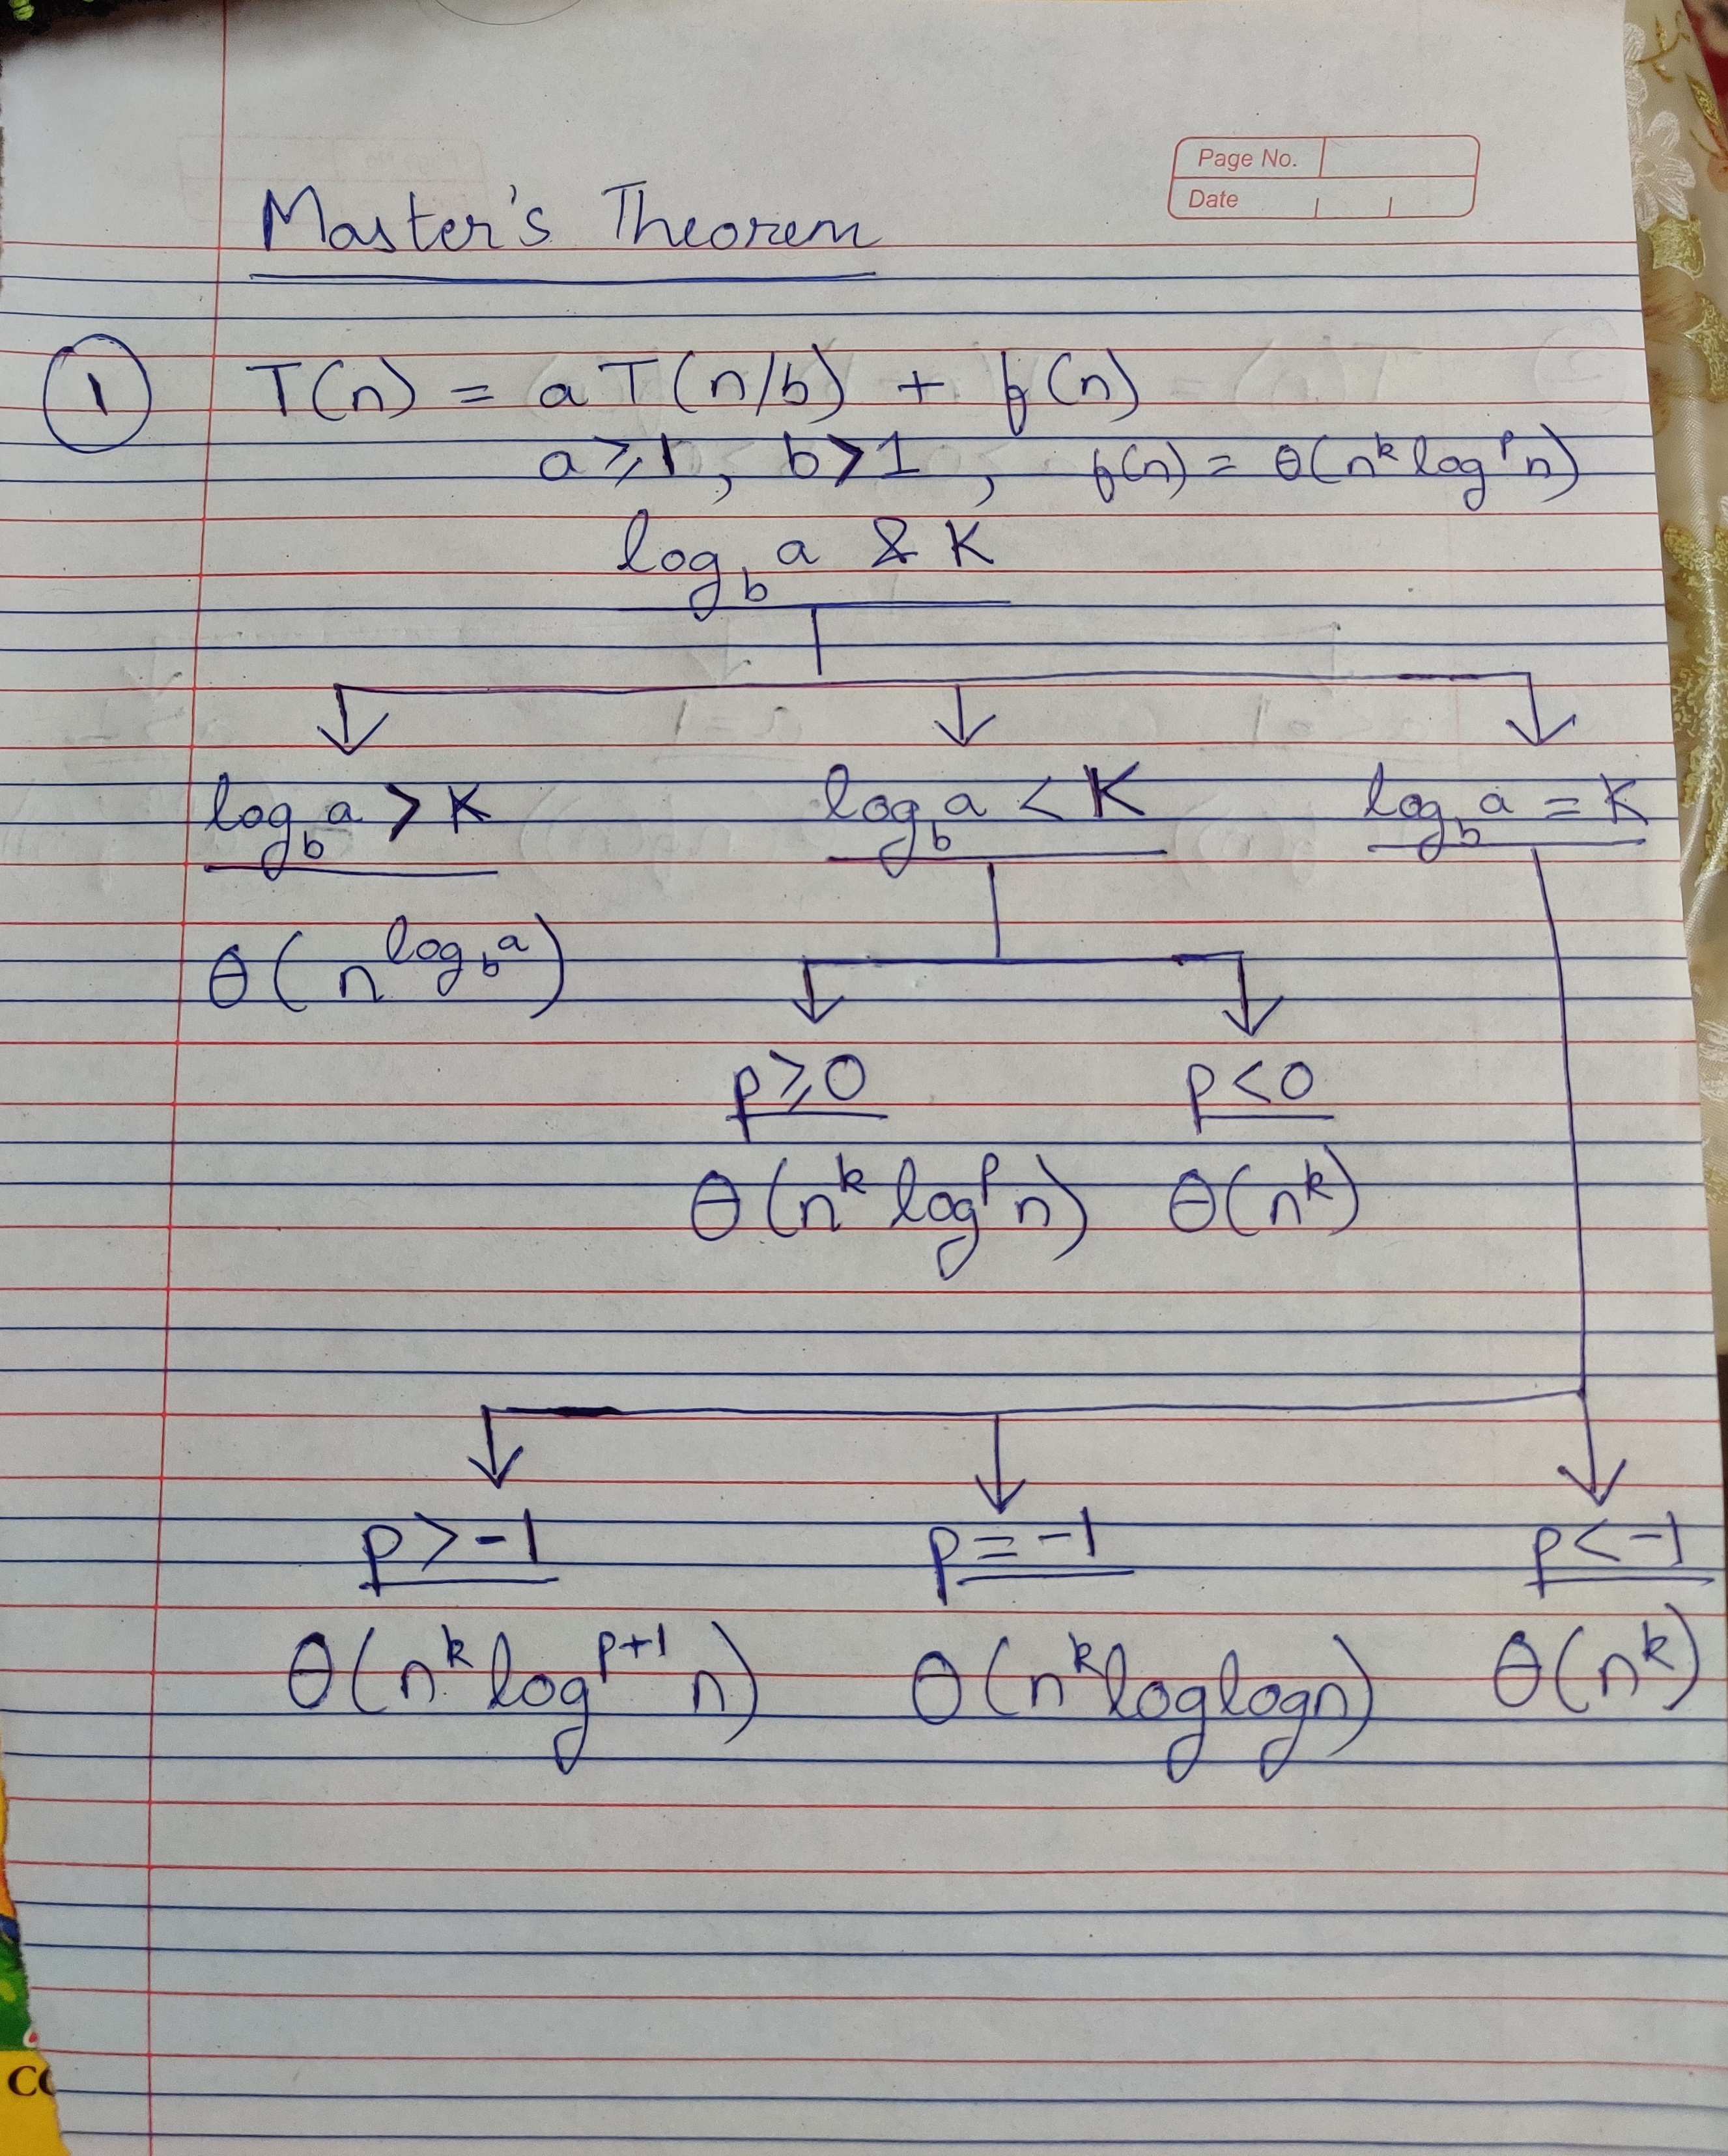 Page No.
Date
Master's Theorem
1 T(n) = a T(n/b) + f(n)
a ≥ 1, b > 1, f(n) = θ(n^k log^p n)
log_b a & K
log_b a > K log_b a < K log_b a = K
θ(n^{log_b a})
p ≥ 0 p < 0
θ(n^k log^p n) θ(n^k)
p > -1 p = -1 p < -1
θ(n^k log^{p+1} n) θ(n^k loglogn) θ(n^k)